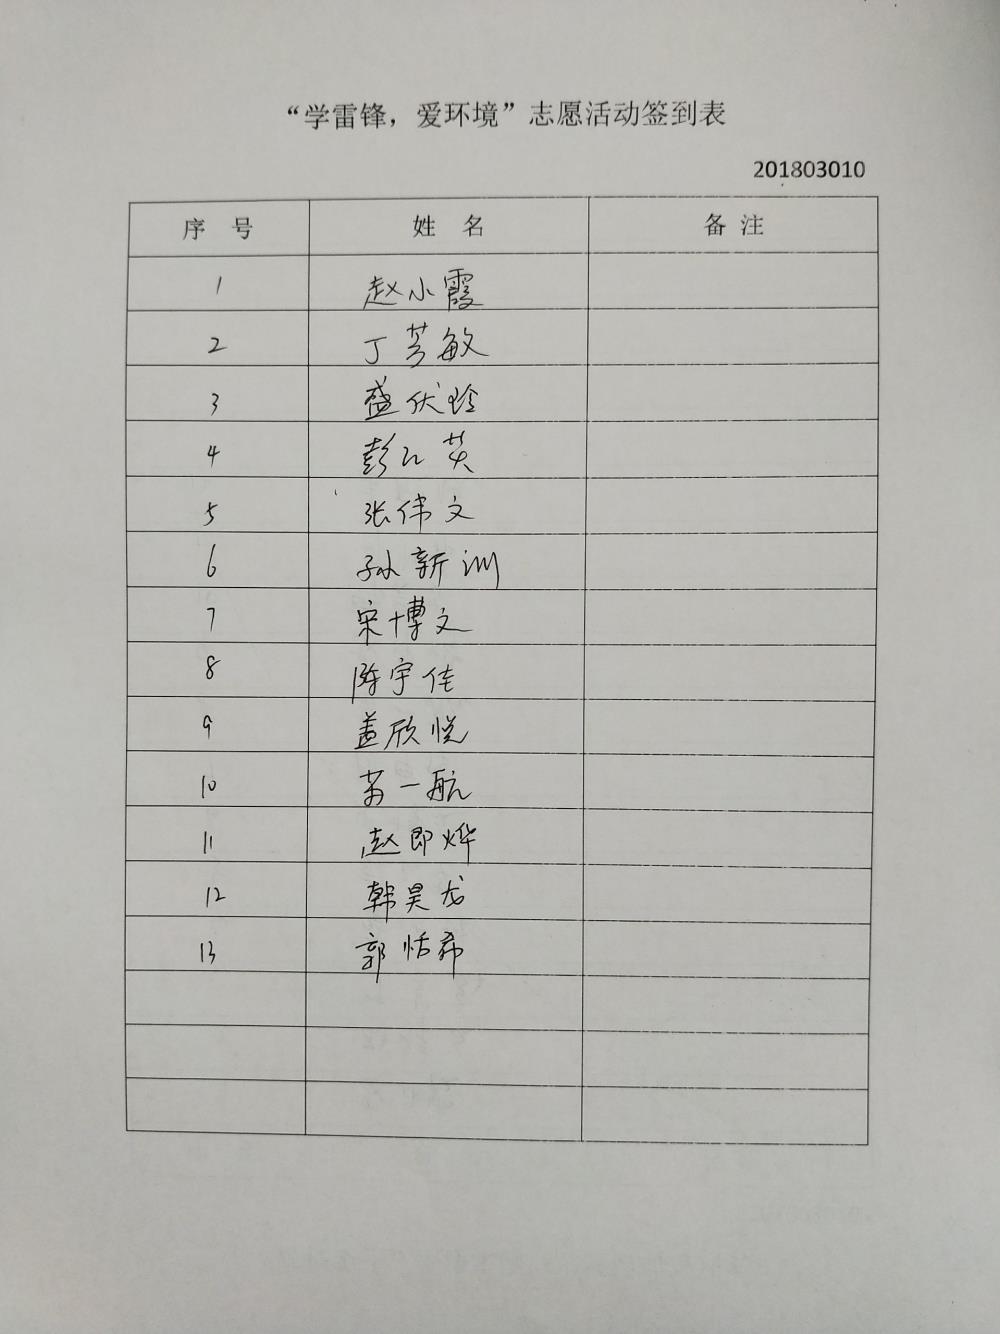 “学雷锋，爱环境”志愿活动签到表
201803010
序 号 姓 名 备 注
1 赵小霞
2 丁芳敏
3 盛伏玲
4 彭江英
5 张伟文
6 孙新训
7 宋博文
8 陈宇佳
9 盖欣悦
10 苏一航
11 赵即烨
12 韩昊龙
13 郭恬希